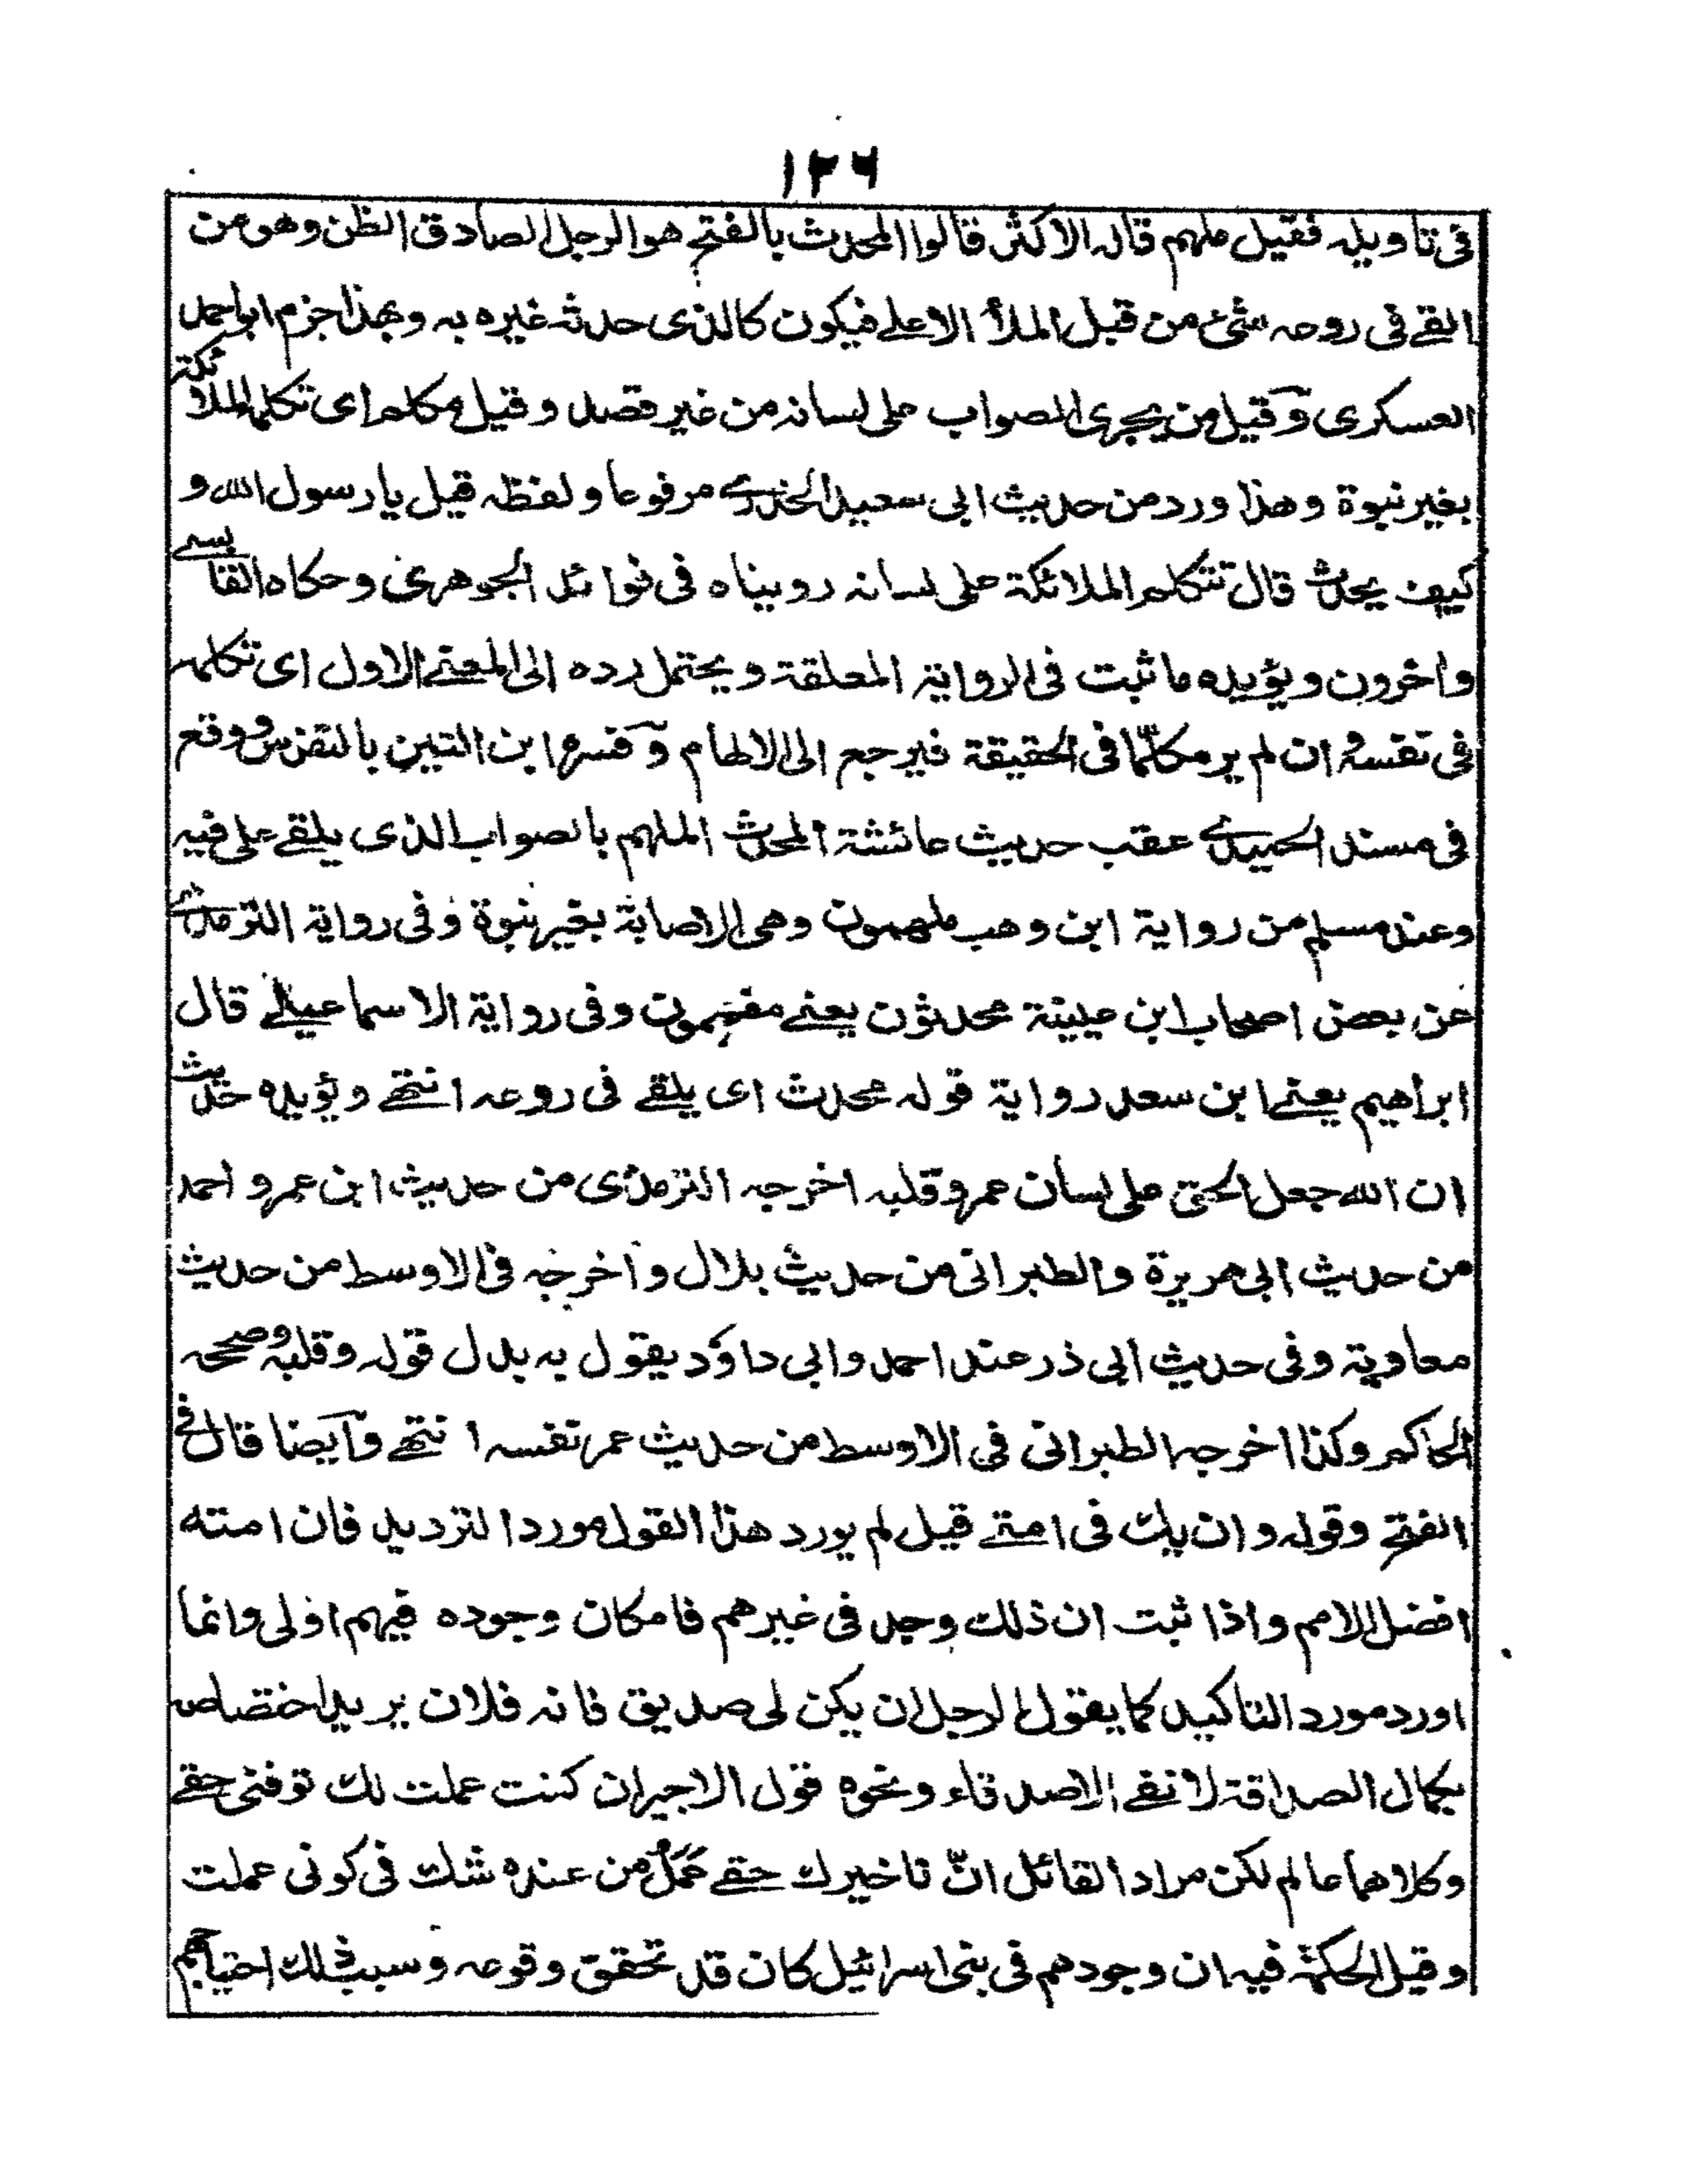 ١٢٦
فی تاویله فقیل ملهم قاله الاکثر قالوا المحدث بالفتح هو الرجل الصادق الظن وهو من
القے فی روحه شیٔ من قبل الملأ الاعلے فیکون کالذی حدثه غیره به وبهذا جزم ابواحمد
العسکری وقیل من یجری الصواب علی لسانه من غیر قصد وقیل مکلم ای تکلمه الملائکة
بغیر نبوة وهذا ورد من حدیث ابی سعید الخدرے مرفوعا ولفظه قیل یا رسول الله و
کیف یحدث قال تتکلم الملائکة علی لسانه رویناه فی فوائد الجوهری وحکاه القابسے
واخرون ویؤیده ما ثبت فی الروایة المعلقة ویحتمل رده الی المعنے الاول ای تکلمه
فی نفسه وان لم یر مکلّما فی الحقیقة فیرجع الی الالهام وفسره ابن التین بالتفرس ووقع
فی مسند الحمیدے عقب حدیث عائشة المحدث الملهم بالصواب الذی یلقے علی فیه
وعند مسلم من روایة ابن وهب ملهمون وهی الاصابة بغیر نبوة وفی روایة الترمذے
عن بعض اصحاب ابن عیینة محدثون یعنے مفهمون وفی روایة الاسماعیلے قال
ابراهیم یعنے ابن سعد روایة قوله محدث ای یلقے فی روعه انتهے ویؤیده حدیث
ان الله جعل الحق علی لسان عمر وقلبه اخرجه الترمذی من حدیث ابن عمر و احمد
من حدیث ابی هریرة والطبرانی من حدیث بلال واخرجه فی الاوسط من حدیث
معاویة وفی حدیث ابی ذر عند احمد وابی داؤد یقول به بدل قوله وقلبه وصححه
الحاکم وکذا اخرجه الطبرانی فی الاوسط من حدیث عمر نفسه انتهے وایضا قال فی
الفتح وقوله وان یک فی امتے قیل لم یورد هذا القول مورد التردید فان امته
افضل الامم واذا ثبت ان ذلک وجد فی غیرهم فامکان وجوده فیهم اولی وانما
اورد مورد التاکید کما یقول الرجل ان یکن لی صدیق فانه فلان یرید اختصاصه
بکمال الصداقة لا نفے الاصدقاء ونحوه قول الاجیر ان کنت عملت لک توفنی حقے
وکلاهما عالم لکن مراد القائل انّ تاخیرک حقے عَمَلُ من عنده شک فی کونی عملت
وقیل الحکمة فیه ان وجودهم فی بنی اسرائیل کان قد تحقق وقوعه وسبب ذلک احتیاجهم